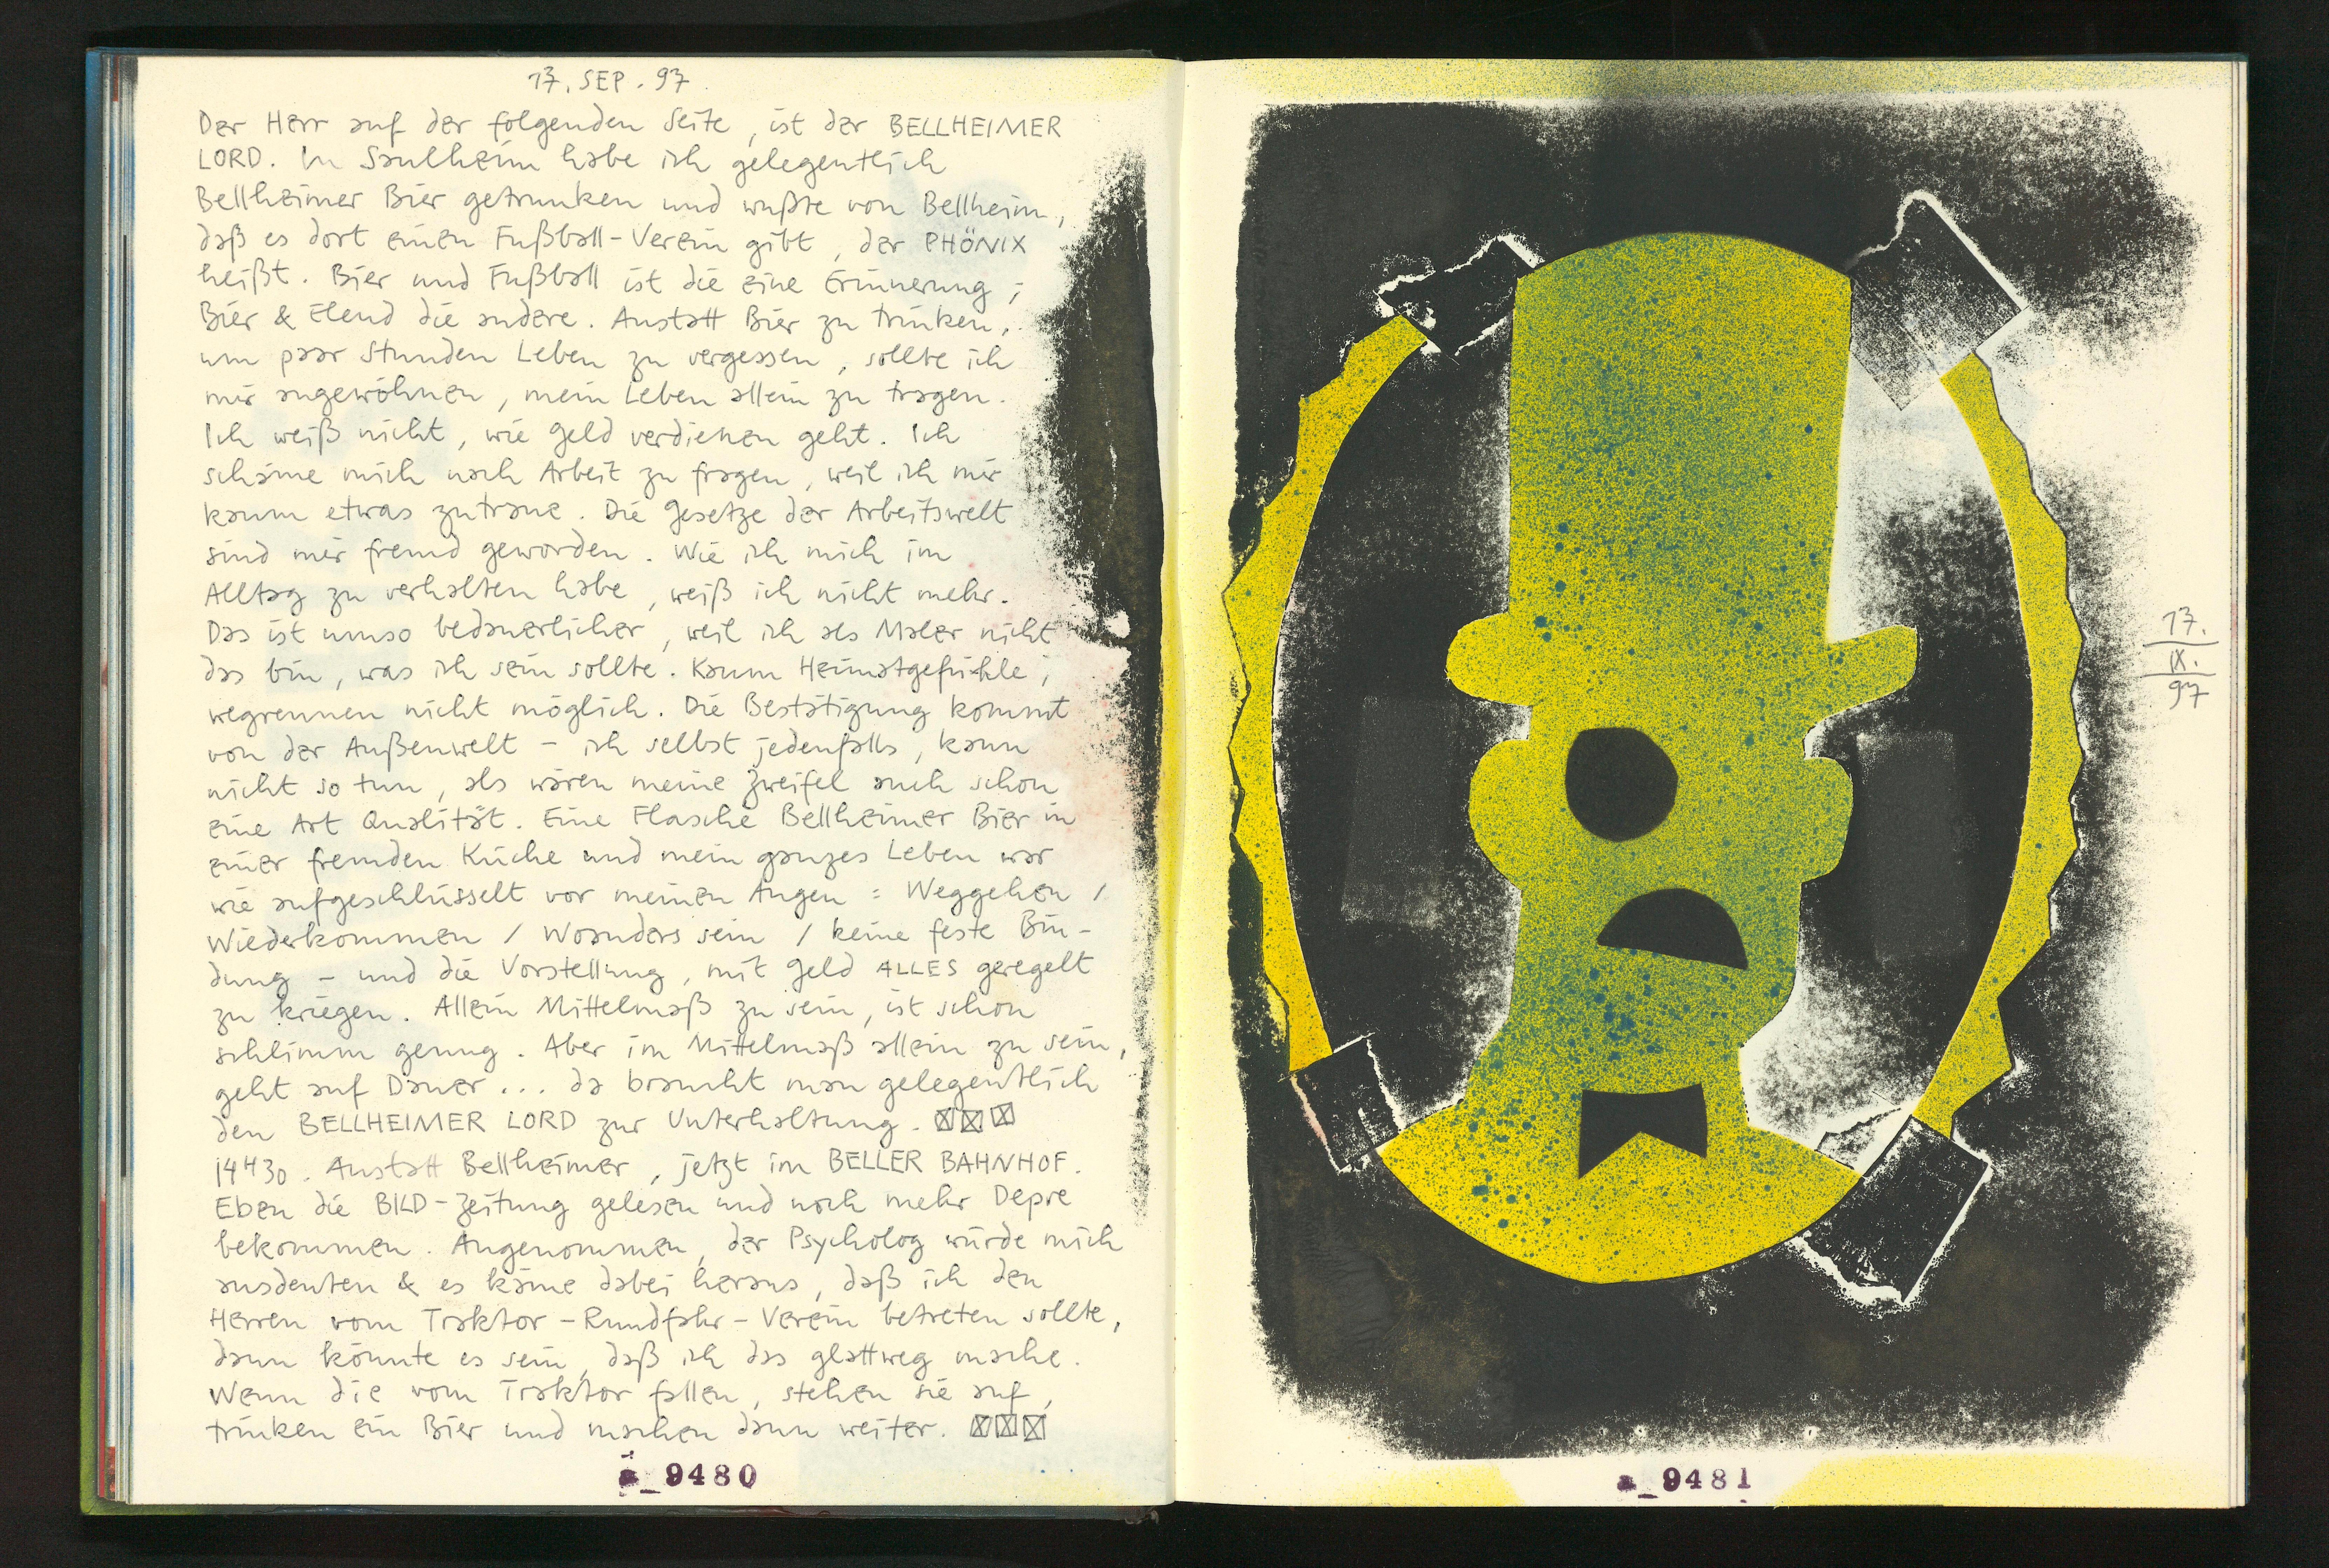 17. SEP. 97
Der Herr auf der folgenden Seite, ist der BELLHEIMER
LORD. In Saulheim habe ich gelegentlich
Bellheimer Bier getrunken und wußte von Bellheim,
daß es dort einen Fußball-Verein gibt, der PHÖNIX
heißt. Bier und Fußball ist die eine Erinnerung;
Bier & Elend die andere. Anstatt Bier zu trinken,
um paar Stunden Leben zu vergessen, sollte ich
mir angewöhnen, mein Leben allein zu tragen.
Ich weiß nicht, wie Geld verdienen geht. Ich
schäme mich nach Arbeit zu fragen, weil ich mir
kaum etwas zutraue. Die Gesetze der Arbeitswelt
sind mir fremd geworden. Wie ich mich im
Alltag zu verhalten habe, weiß ich nicht mehr.
Das ist umso bedauerlicher, weil ich als Maler nicht
das bin, was ich sein sollte. Kaum Heimatgefühle;
wegrennen nicht möglich. Die Bestätigung kommt
von der Außenwelt – ich selbst jedenfalls, kann
nicht so tun, als wären meine Zweifel auch schon
eine Art Qualität. Eine Flasche Bellheimer Bier in
einer fremden Küche und mein ganzes Leben war
wie aufgeschlüsselt vor meinen Augen: Weggehen /
Wiederkommen / Woanders sein / keine feste Bin-
dung – und die Vorstellung, mit Geld ALLES geregelt
zu kriegen. Allein Mittelmaß zu sein, ist schon
schlimm genug. Aber im Mittelmaß allein zu sein,
geht auf Dauer... da braucht man gelegentlich
den BELLHEIMER LORD zur Unterhaltung.
14 H 30. Anstatt Bellheimer, jetzt im BELLER BAHNHOF.
Eben die BILD-Zeitung gelesen und noch mehr Depre
bekommen. Angenommen, der Psycholog würde mich
ausdeuten & es käme dabei heraus, daß ich den
Herren vom Traktor-Rundfahr-Verein betreten sollte,
dann könnte es sein, daß ich das glattweg mache.
Wenn die vom Traktor fallen, stehen sie auf,
trinken ein Bier und machen dann weiter.
a_9480
17.
IX.
97
a_9481